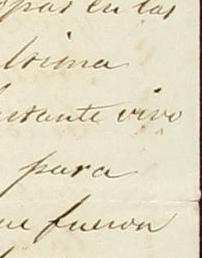 opas en las
ssima
bastante vivo
para
que fueron